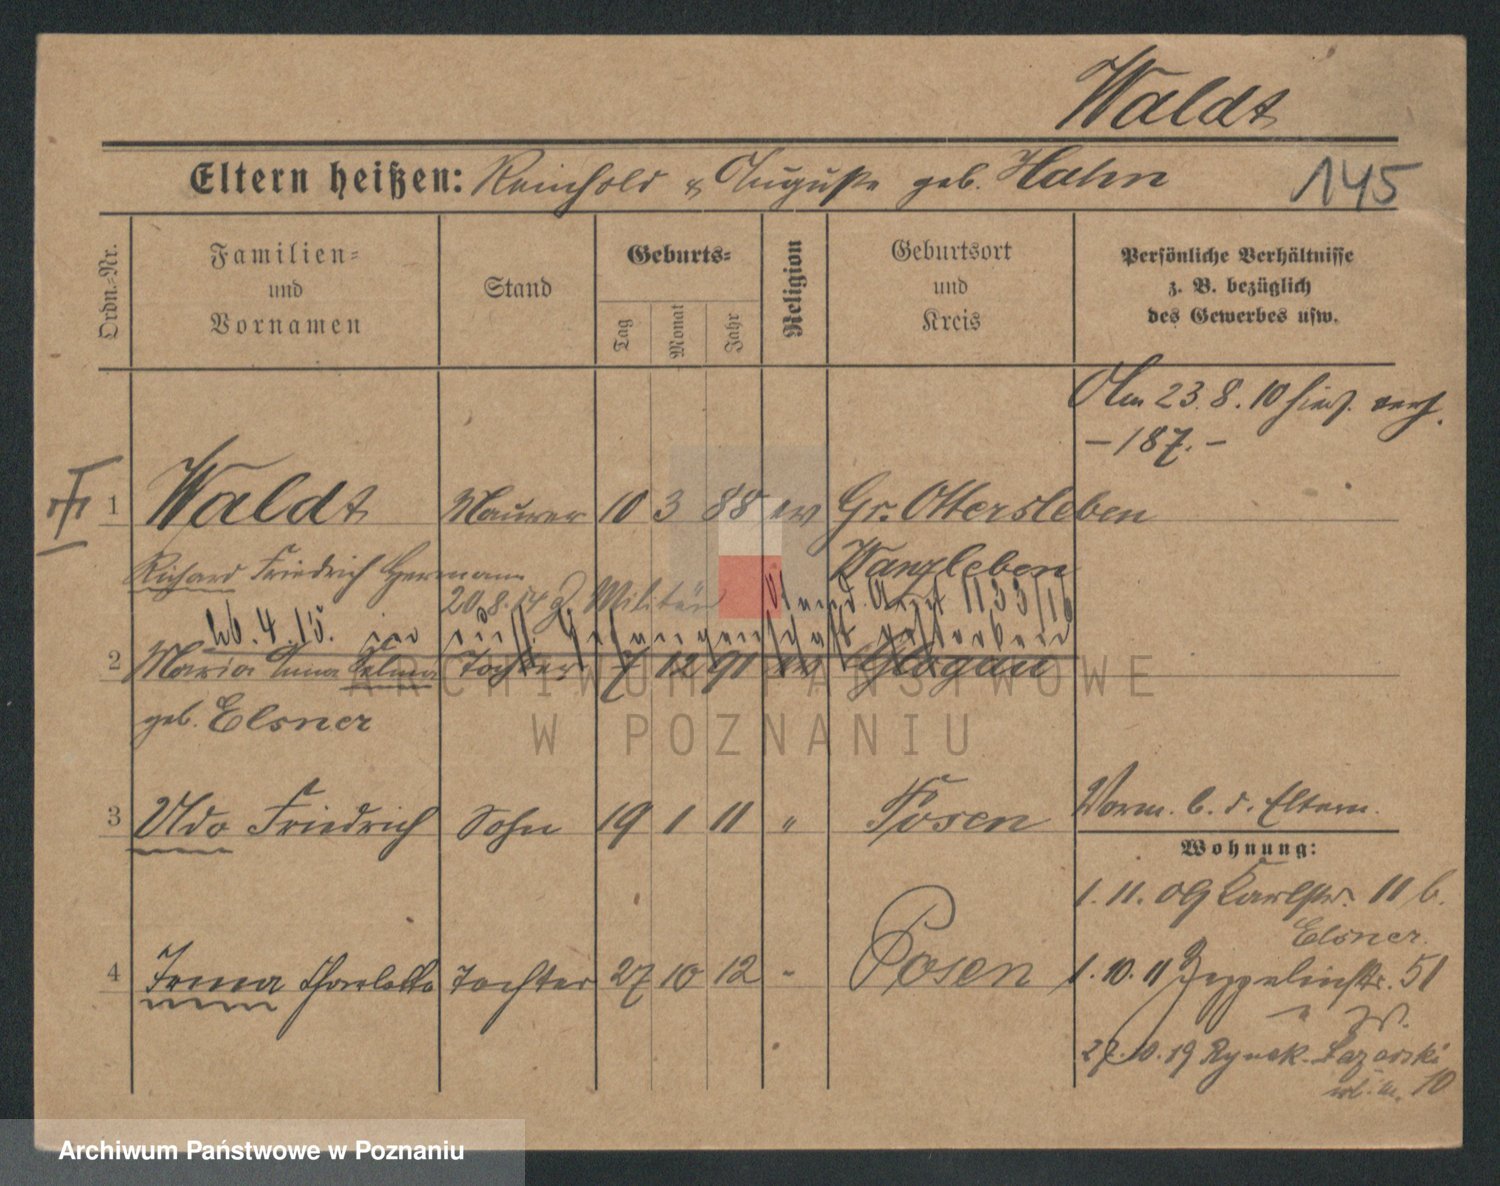 Waldt
Eltern heißen: Reinhold & Auguste geb. Hahn
145
Ordn.-Nr.
Familien-
und
Vornamen
Stand
Geburts-
Tag
Monat
Jahr
Religion
Geburtsort
und
Kreis
Persönliche Verhältnisse
z. B. bezüglich
des Gewerbes usw.
Am 23.8.10 hies. verh.
- 187. -
1 Waldt Maurer 10 3 88 ev Gr. Ottersleben
Richard Friedrich Hermann Wanzleben
20.8.14 z. Militär
4.15. in russ. Gefangenschaft gestorben
Stand. Amt 1133/16
2 Maria Anna Selma Tochter 7 12 91 ev Glogau
geb. Elsner
3 Udo Friedrich Sohn 19 1 11 " Posen Vorm. b. d. Eltern.
Wohnung:
1.11.09 Karlstr. 11 b.
Elsner.
4 Irma Charlotte Tochter 27 10 12 " Posen 1.10.11 Zeppelinstr. 51
27.10.19 Rynek Łazarski
10
Archiwum Państwowe
w Poznaniu
Archiwum Państwowe w Poznaniu